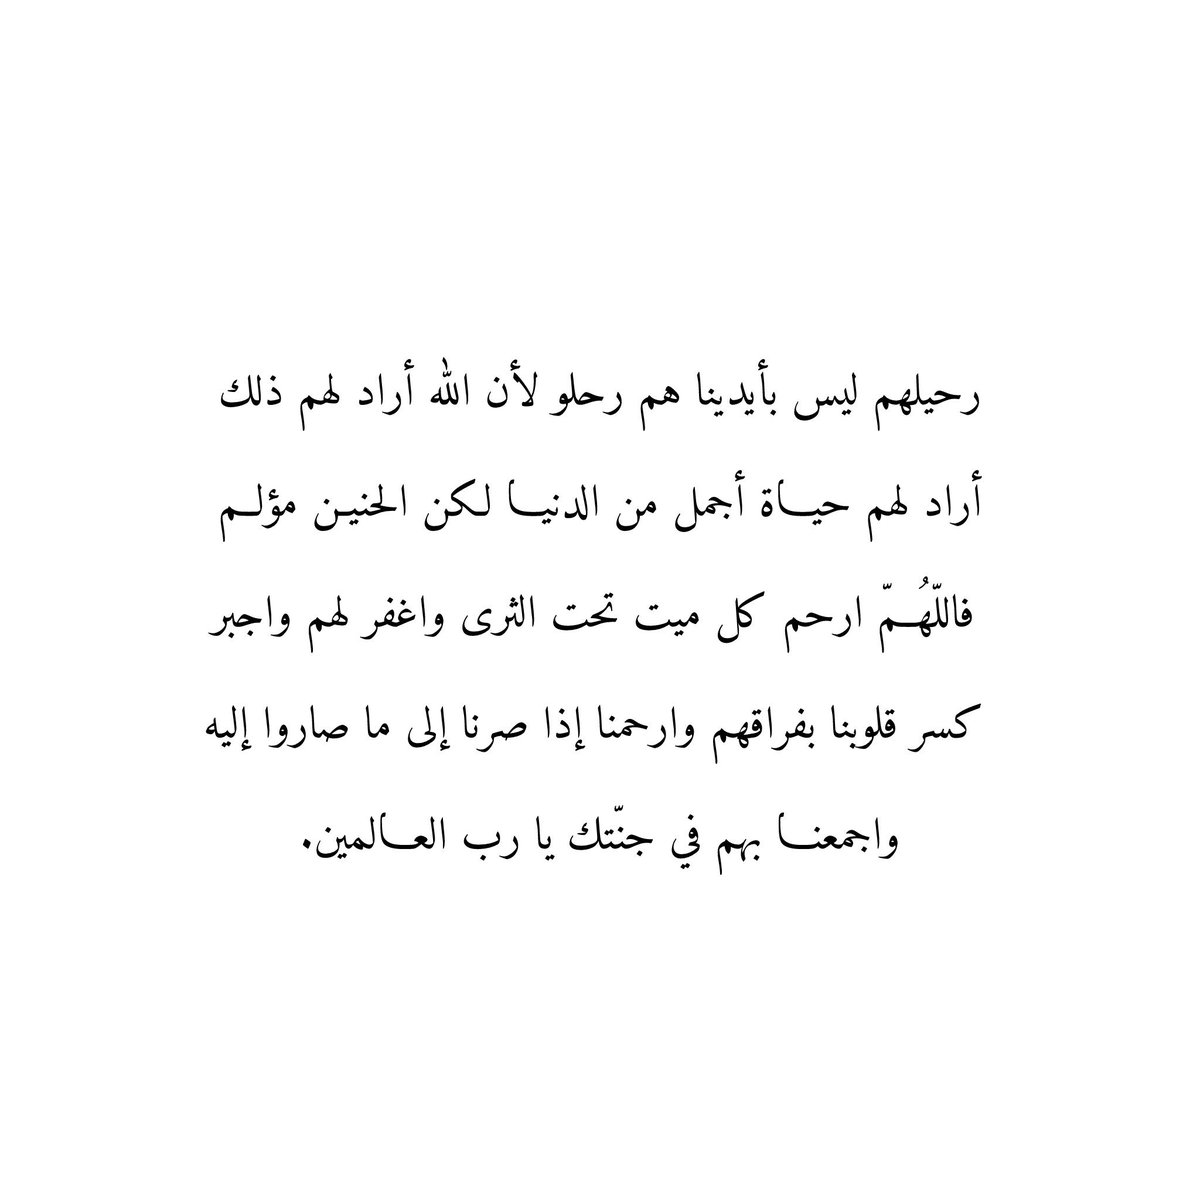 رحيلهم ليس بأيدينا هم رحلو لأن الله أراد لهم ذلك
أراد لهم حيـــاة أجمل من الدنيـــا لـكن الحنيـن مؤلـــم
فاللّهُـــمّ ارحم كل ميت تحت الثرى واغفر لهم واجبر
كسر قلوبنا بفراقهم وارحمنا إذا صرنا إلى ما صاروا إليه
واجمعنـــا بهم في جنّتك يا رب العـــالمين.